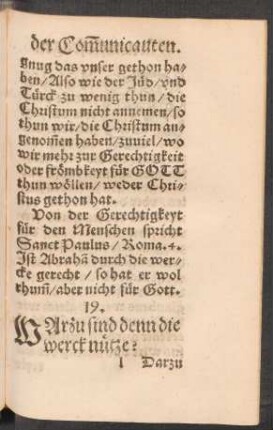 der Com̃unicauten.
gnug das vnser gethon ha-
ben/Also wie der Jüd/vnd
Türck zu wenig thun/die
Christum nicht annemen/so
thun wir/die Christum an-
genom̃en haben/zuuiel/wo
wir mehr zur Gerechtigkeit
oder frömbkeyt für GOTT
thun wöllen/weder Chri-
stus gethon hat.
Von der Gerechtigkeyt
für den Menschen spricht
Sanct Paulus/Roma.4.
Ist Abrahã durch die wer-
cke gerecht/so hat er wol
rhum̃/aber nicht für Gott.
19.
WArzu sind denn die
werck nütze?
l Darzu